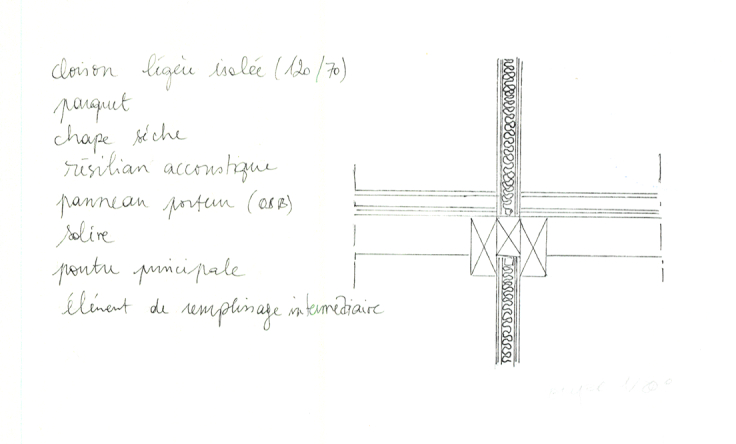 cloison légère isolée (120/70)
parquet
chape sèche
résilian accoustique
panneau porteur (OSB)
solive
poutre principale
élément de remplissage intermédiaire